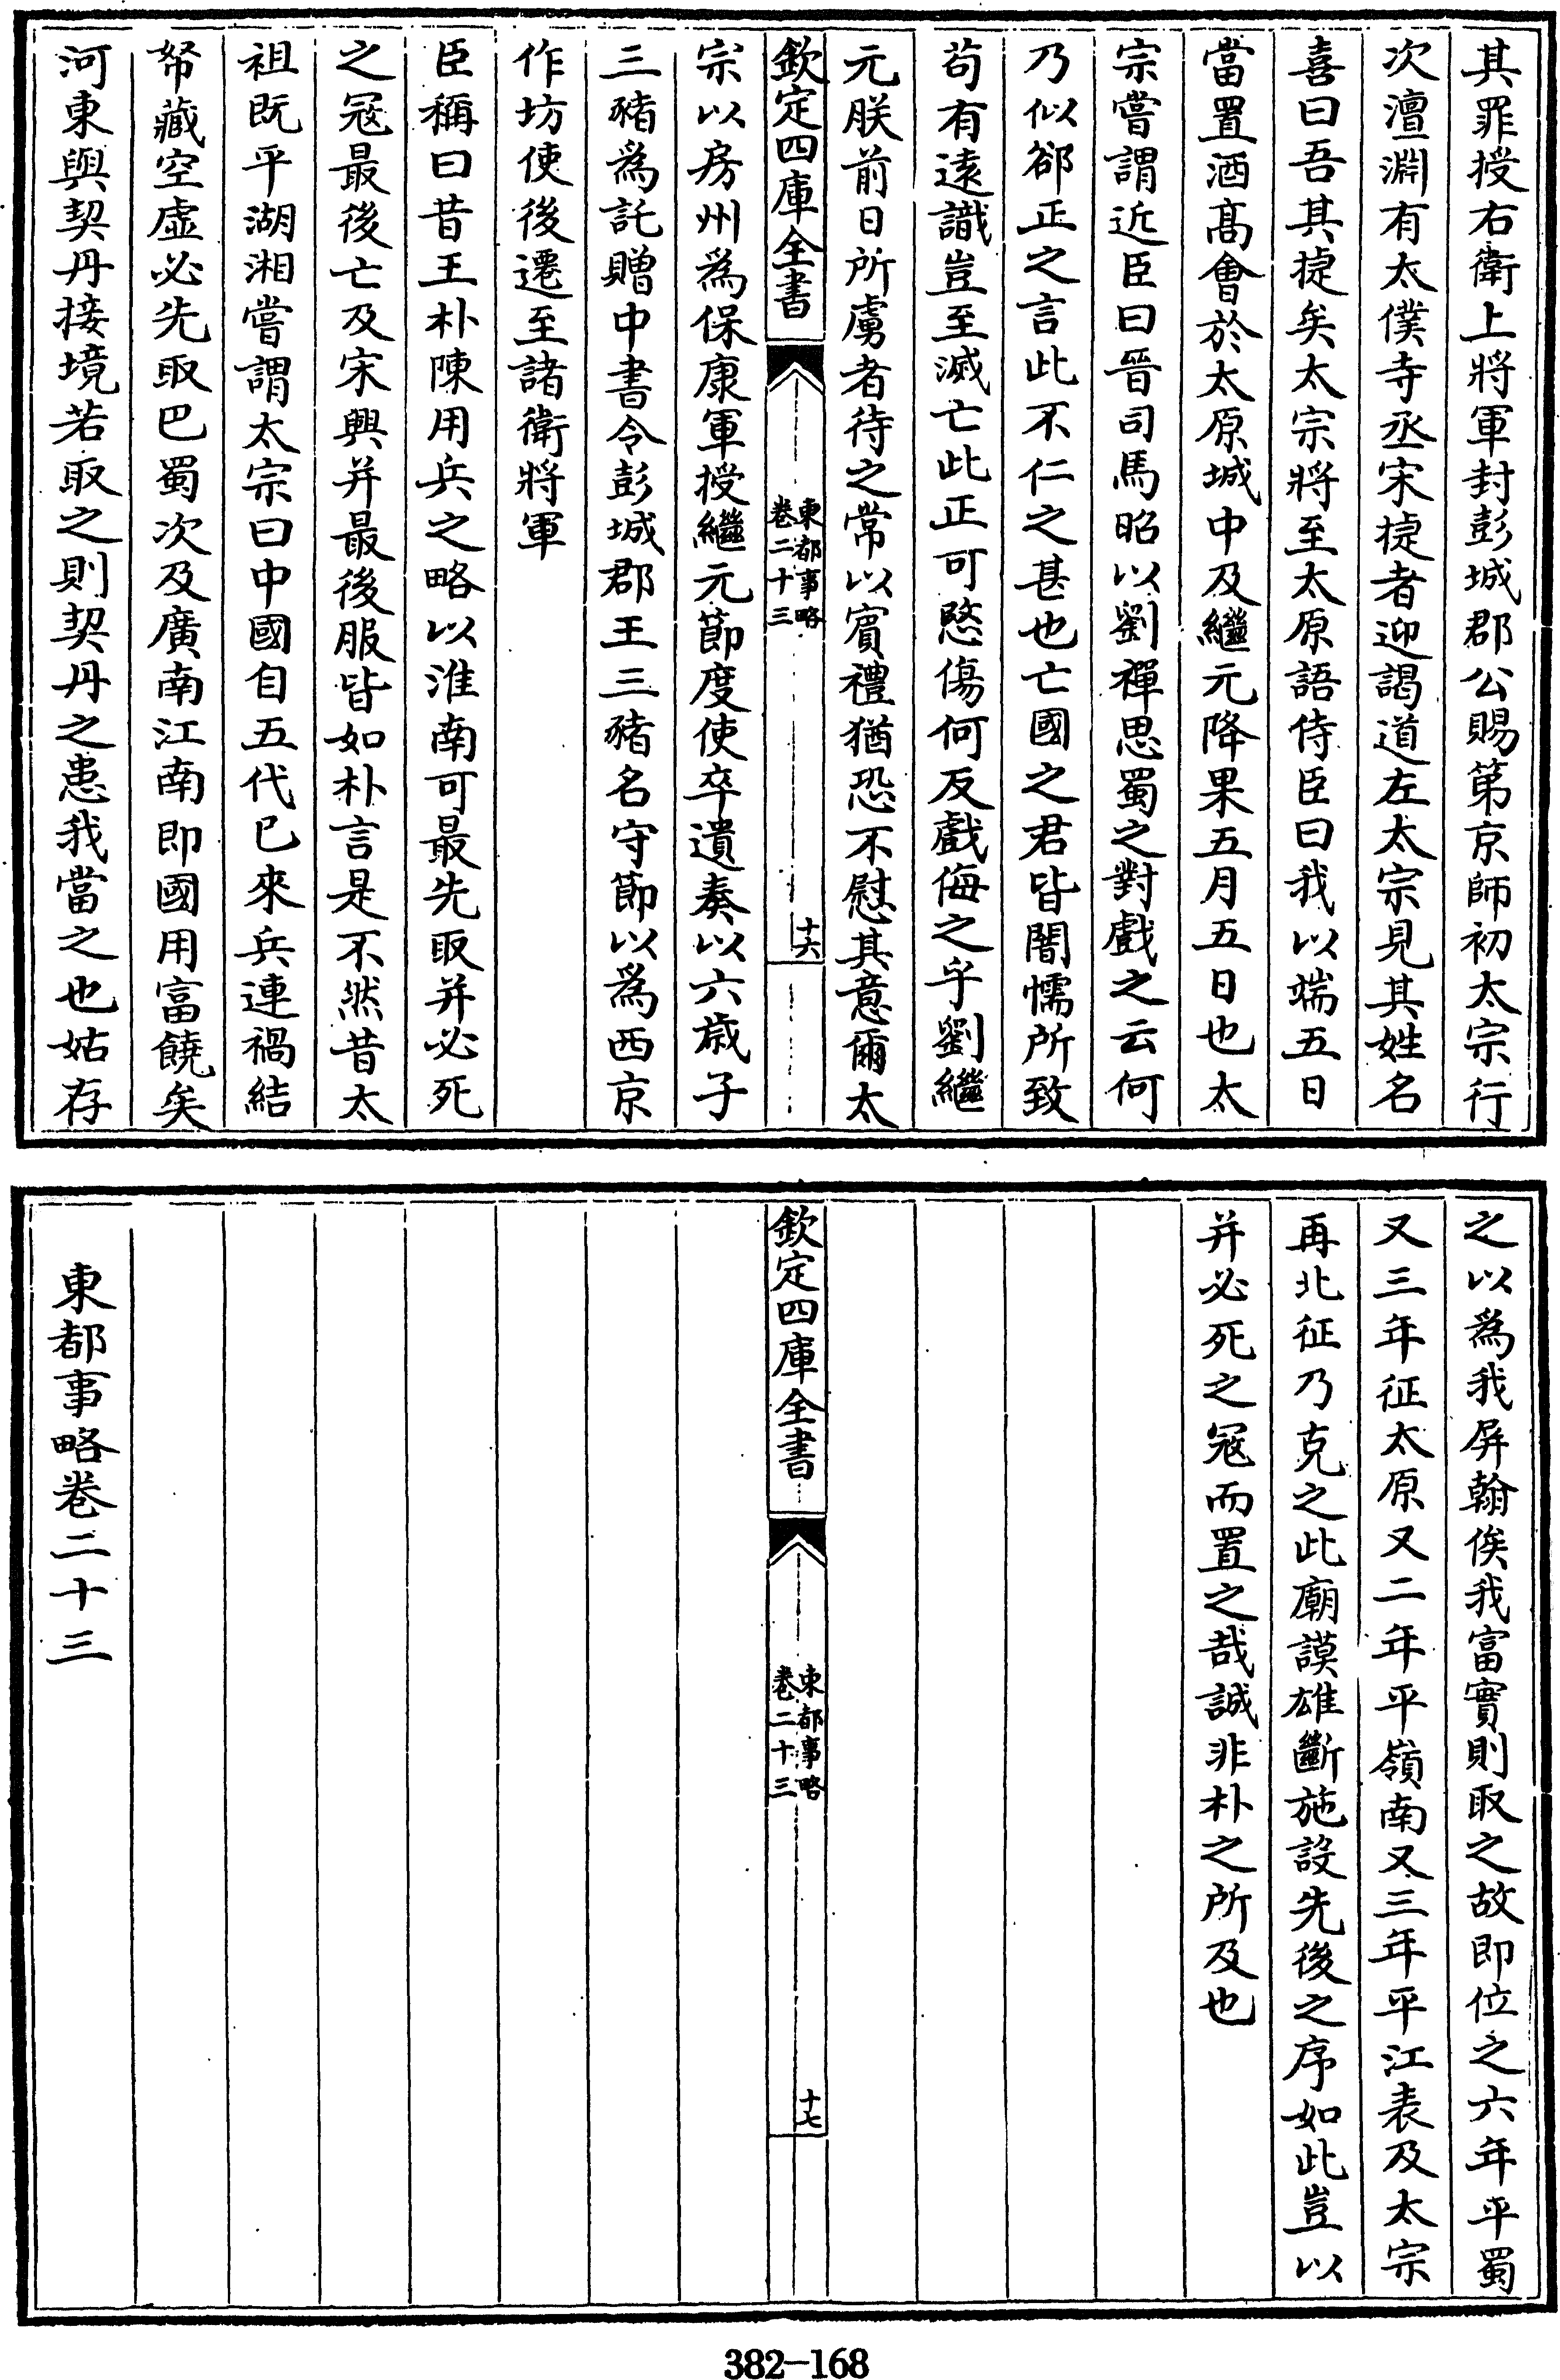 其罪授右衛上將軍封彭城郡公賜第京師初太宗行
次澶淵有太僕寺丞宋捷者迎謁道左太宗見其姓名
喜曰吾其捷矣太宗將至太原語侍臣曰我以端五日
當置酒髙會於太原城中及繼元降果五月五日也太
宗嘗謂近臣曰晉司馬昭以劉禪思蜀之對戲之云何
乃似郤正之言此不仁之甚也亡國之君皆闇懦所致
茍有逺識豈至滅亡此正可愍傷何反戲侮之乎劉繼
元朕前日所虜者待之常以賔禮猶恐不慰其意爾太
欽定四庫全書
東都事略
卷二十三
十六
宗以房州爲保康軍授繼元節度使卒遺奏以六歳子
三豬爲託贈中書令彭城郡王三豬名守節以爲西京
作坊使後遷至諸衛將軍
臣稱曰昔王朴陳用兵之略以淮南可最先取并必死
之冦最後亡及宋興并最後服皆如朴言是不然昔太
祖既平湖湘嘗謂太宗曰中國自五代已來兵連禍結
帑藏空虛必先取巴蜀次及廣南江南即國用富饒矣
河東與契丹接境若取之則契丹之患我當之也姑存
之以爲我屏翰俟我富實則取之故即位之六年平蜀
又三年征太原又二年平嶺南又三年平江表及太宗
再北征乃克之此廟謨雄斷施設先後之序如此豈以
并必死之冦而置之哉誠非朴之所及也
欽定四庫全書
東都事略
卷二十三
十七
東都事略卷二十三
382-168